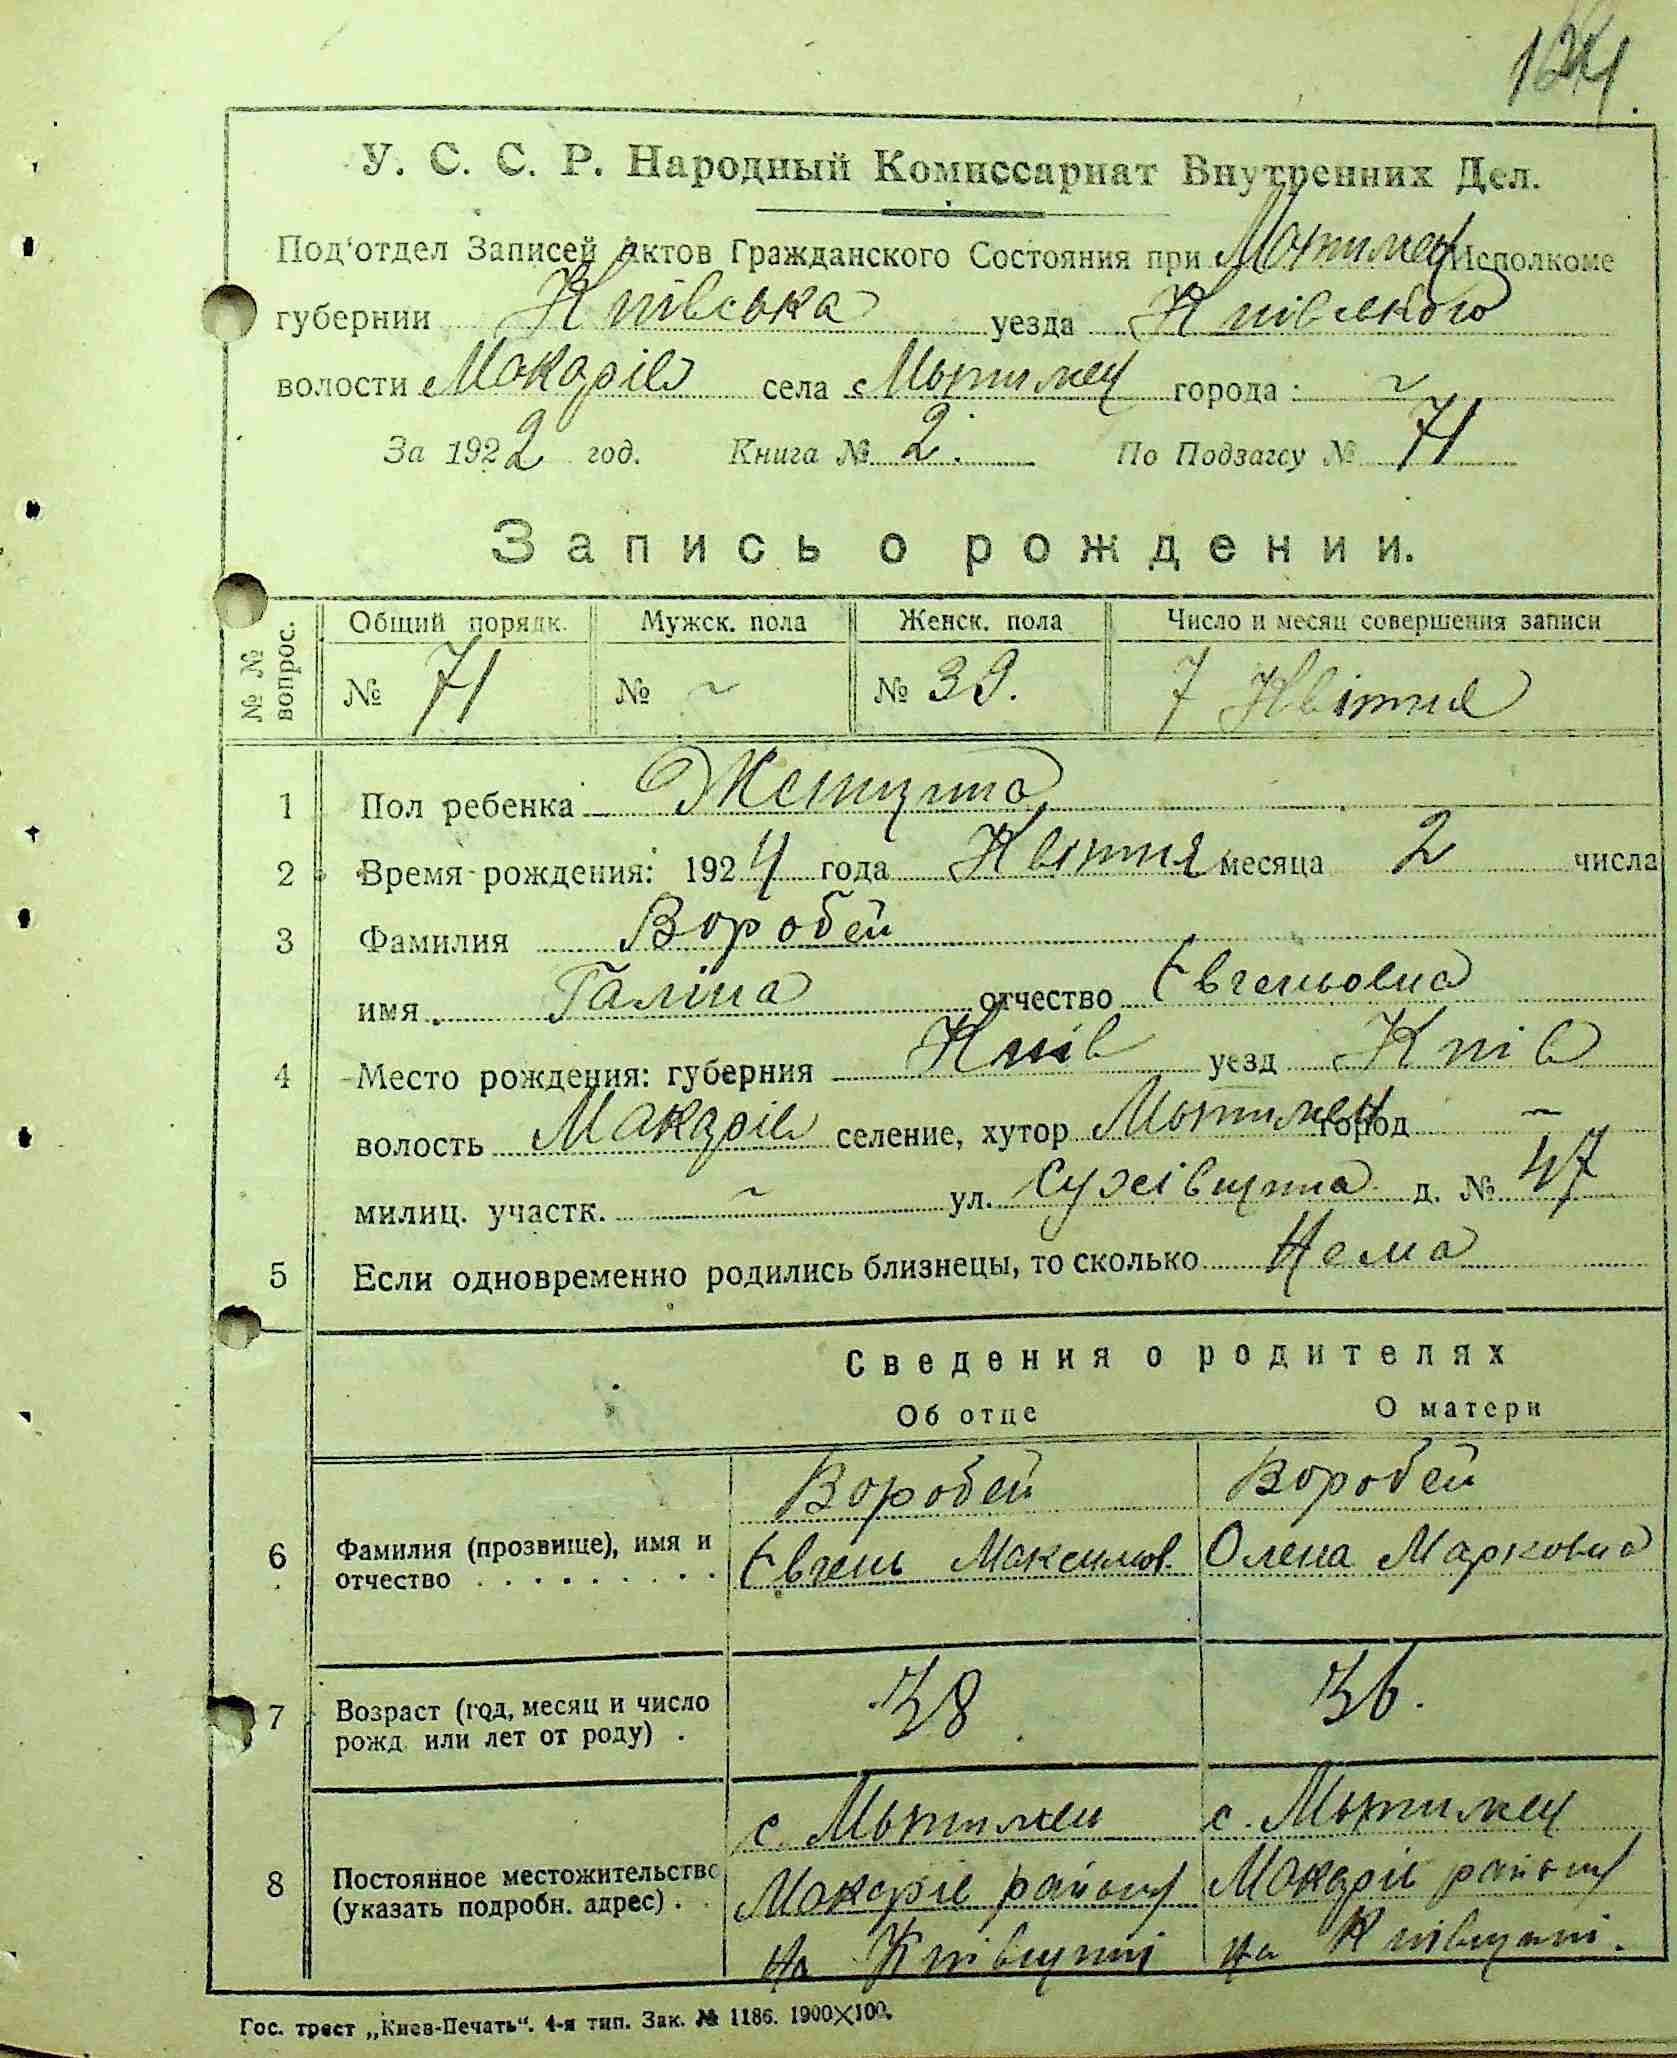 124
У. С. С. Р. Народный Комиссариат Внутренних Дел.
Под'отдел Записей Актов Гражданского Состояния при Мотижец Исполкоме
губернии Київська уезда Київського
волости Макарів села Мотижец города: ~
За 1922 год. Книга № 2. По Подзагсу № 71
Запись о рождении.
№ № вопрос. Общий порядк. Мужск. пола Женск. пола Число и месяц совершения записи
№ 71 № ~ № 39. 7 Квітня
1 Пол ребенка Женщина
2 Время рождения: 1924 года Квітня месяца 2 числа
3 Фамилия Воробей
имя Галіна отчество Євгеньовна
4 Место рождения: губерния Київ уезд Київ
волость Макарів селение, хутор Мотижец город ~
милиц. участк. ~ ул. д. № 47
5 Если одновременно родились близнецы, то сколько Нема
Сведения о родителях
Об отце О матери
Воробей Воробей
6 Фамилия (прозвище), имя и отчество Євгень Максимов. Олена Марковна
7 Возраст (год, месяц и число рожд или лет от роду) . 38 36.
с. Мотижец с. Мотижец
8 Постоянное местожительство (указать подробн. адрес) . Макарів району Макарів району
на Київщині на Київщині.
Гос. трест „Киев-Печать“. 4-я тип. Зак. № 1186. 1900×100.